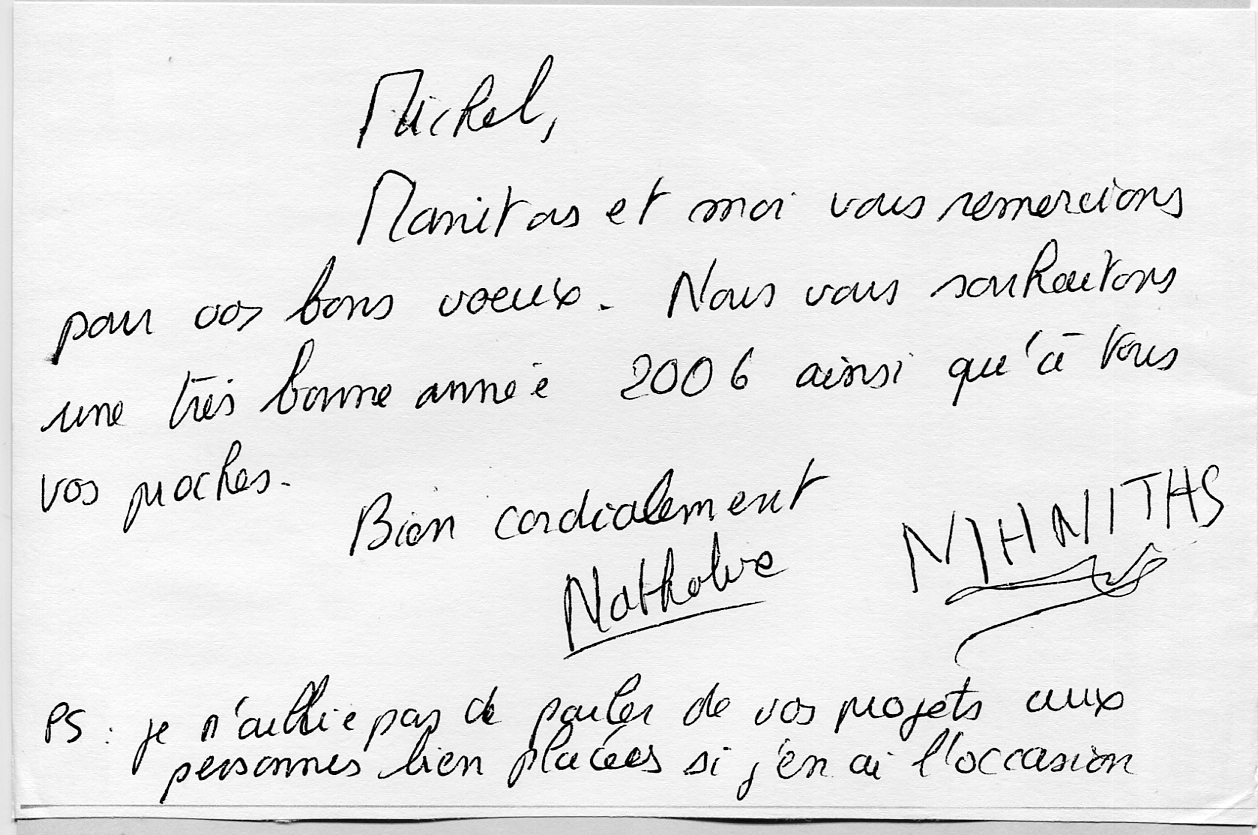 Michel,
Manitas et moi vous remercions
pour vos bons voeux. Nous vous souhaitons
une très bonne année 2006 ainsi qu'à tous
vos proches.
Bien cordialement
Nathalie
MANITAS
PS : je n'oublie pas de parler de vos projets aux
personnes bien placées si j'en ai l'occasion